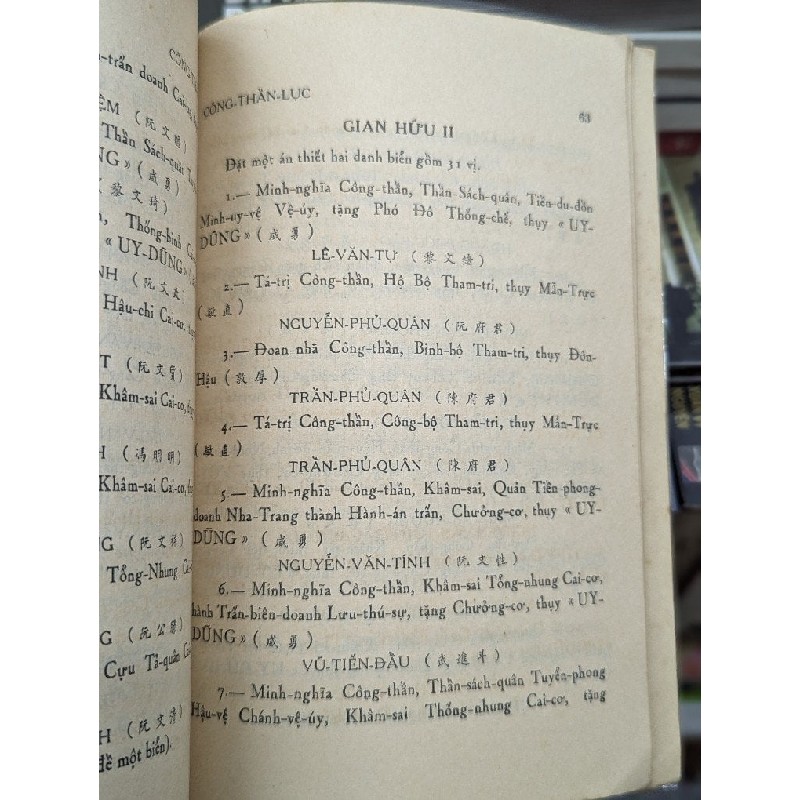 CÔNG
n-trấn doanh Cai-cơ
ỆM (阮文
Thần Sách-quân
NG » (威勇)
(黎文琦)
, Thống-binh C
« UY-DŨNG»
NH (阮文太)
Hậu-chi Cai-cơ,
T (阮文質)
Khâm-sai Cai-cơ,
H (馮朋明)
Khâm-sai Cai-cơ,
NG (阮文
Tổng-Nhung Cai-
NG (阮公
Cựu Tả-quân Ca
H (阮文清)
đề một biển).
CÔNG-THẦN-LỤC
63
GIAN HỮU II
Đặt một án thiết hai danh biển gồm 31 vị.
1.— Minh-nghĩa Công-thần, Thần Sách-quân, Tiền-du-đồn
Minh-uy-vệ Vệ-úy, tặng Phó Đô Thống-chế, thụy « UY-
DŨNG» (威勇)
LÊ-VĂN-TỰ (黎文
2.— Tá-trị Công-thần, Hộ Bộ Tham-tri, thụy Mẫn-Trực
(敏直)
NGUYỄN-PHỦ-QUÂN (阮府君)
3.— Đoan nhã Công-thần, Binh-bộ Tham-tri, thụy Đôn-
Hậu (敦厚)
TRẦN-PHỦ-QUÂN (陳府君)
4.— Tá-trị Công-thần, Công-bộ Tham-tri, thụy Mẫn-Trực
(敏直)
TRẦN-PHỦ-QUÂN (陳府君)
5.— Minh-nghĩa Công-thần, Khâm-sai, Quản Tiền-phong-
doanh Nha-Trang thành Hành-án trấn, Chưởng-cơ, thụy « UY-
DŨNG» (威勇)
NGUYỄN-VĂN-TÍNH (阮文性)
6.— Minh-nghĩa Công-thần, Khâm-sai Tổng-nhung Cai-cơ,
hành Trấn-biên-doanh Lưu-thú-sự, tặng Chưởng-cơ, thụy « UY-
DŨNG» (威勇)
VŨ-TIẾN-ĐẨU (武進斗)
7.— Minh-nghĩa Công-thần, Thần-sách-quân Tuyển-phong
Hậu-vệ Chánh-vệ-úy, Khâm-sai Thống-nhung Cai-cơ, tặng